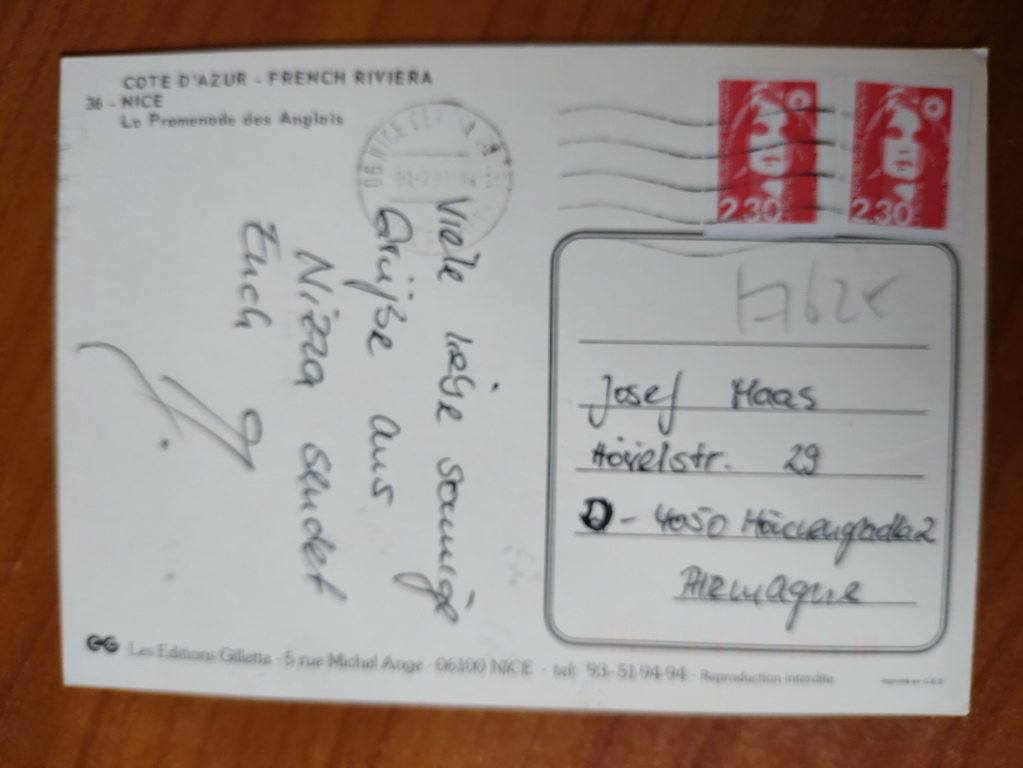 COTE D'AZUR - FRENCH RIVIERA
36 - NICE
La Promenade des Anglais
06 NICE
2,30
2,30
Viele liebe sonnige
Grüße aus
Nizza sendet
Euch
Josef Haas
Hövelstr. 29
D - 4050 Mönchengladbach 2
Allemagne
GG Les Editions Gilletta - 5 rue Michel Ange - 06100 NICE - tel: 93-51-94-94 - Reproduction interdite